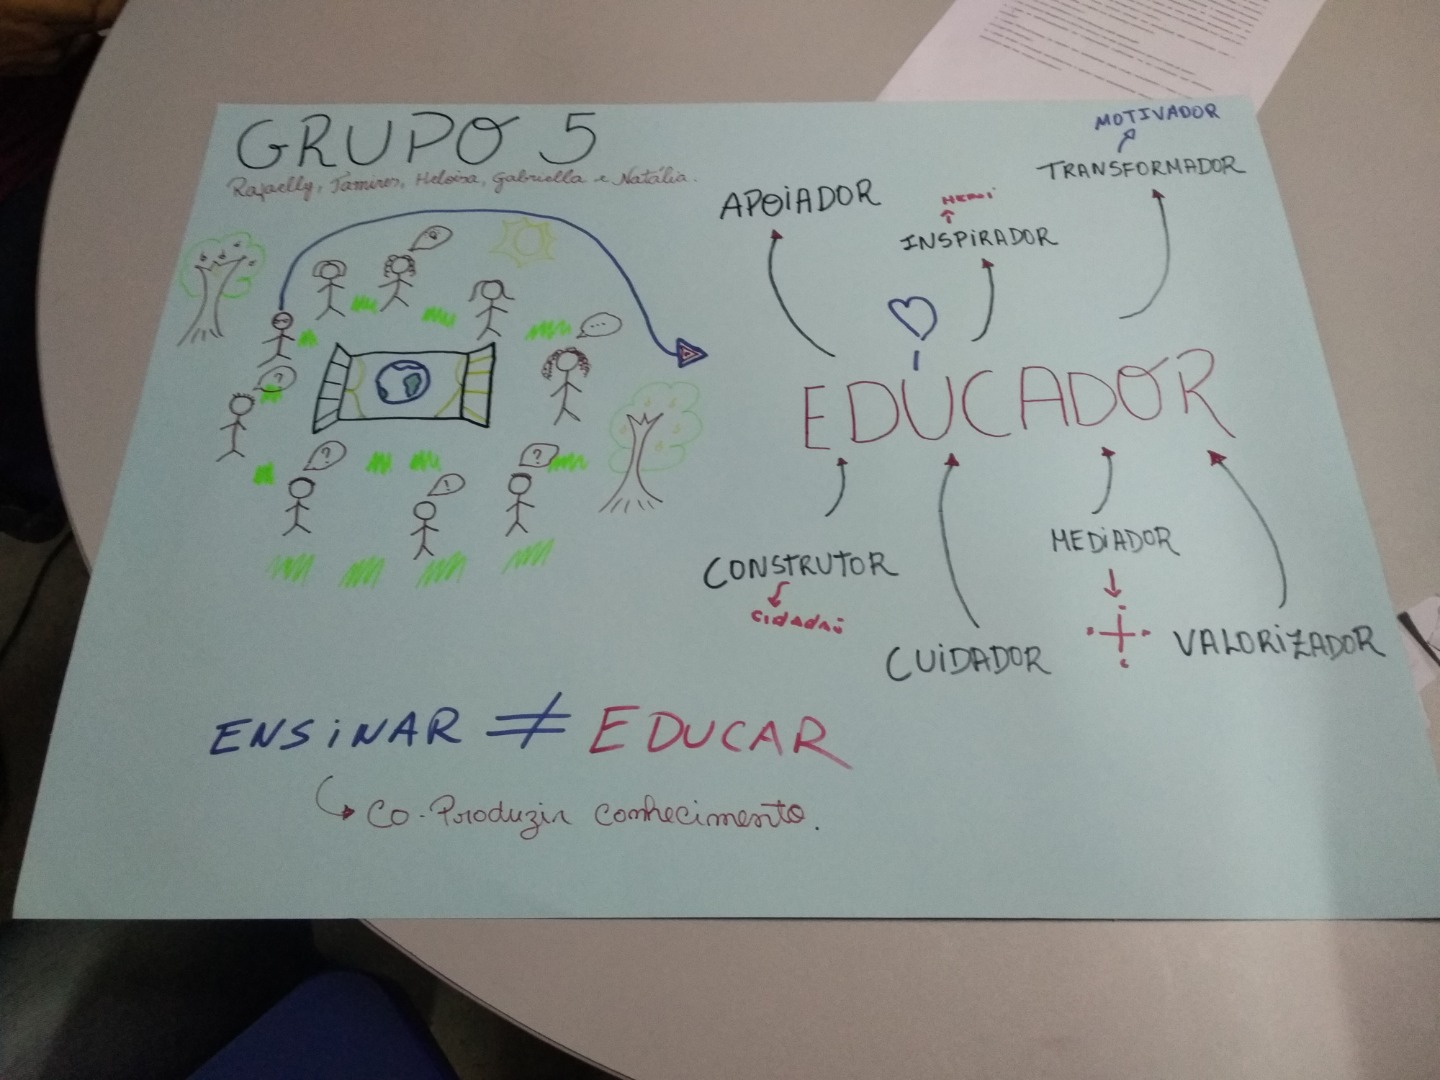 GRUPO 5
Rafaelly, Tamires, Heloisa, Gabriella e Natália.
MOTIVADOR
TRANSFORMADOR
APOIADOR
HEROI
INSPIRADOR
EDUCADOR
?
...
?
!
?
MEDIADOR
CONSTRUTOR
CIDADÃO
CUIDADOR
VALORIZADOR
ENSINAR ≠ EDUCAR
CO-Produzir conhecimento.